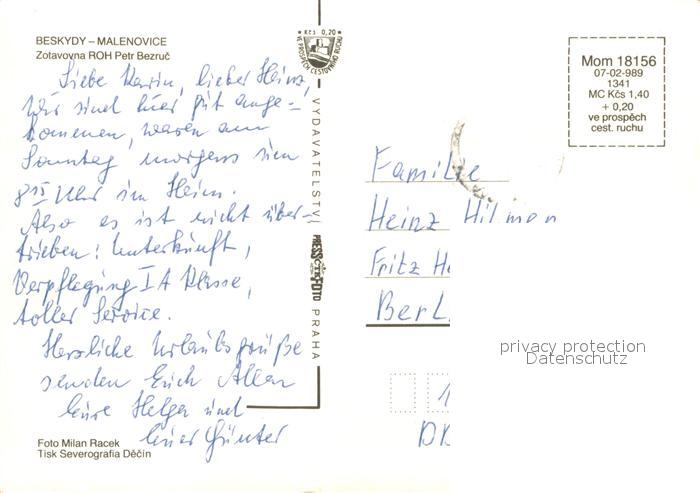 BESKYDY – MALENOVICE
Zotavovna ROH Petr Bezruč
Liebe Karin, lieber Heinz,
Wir sind hier gut ange-
kommen, waren am
Sonntag morgens um
8 15 Uhr im Heim.
Also es ist nicht über-
trieben: Unterkunft,
Verpflegung I A Klasse,
toller Service.
Herzliche Urlaubsgrüße
senden Euch Allen
Eure Helga und
Euer Günter
Foto Milan Racek
Tisk Severografia Děčín
Kčs 0,20
VE PROSPĚCH CESTOVNÍHO RUCHU
VYDAVATELSTVÍ PRESSFOTO PRAHA
ČTK
Mom 18156
07-02-989
1341
MC Kčs 1,40
+ 0,20
ve prospěch
cest. ruchu
Familie
Heinz Hilmon
Fritz H
Berl
1
DD
privacy protection
Datenschutz